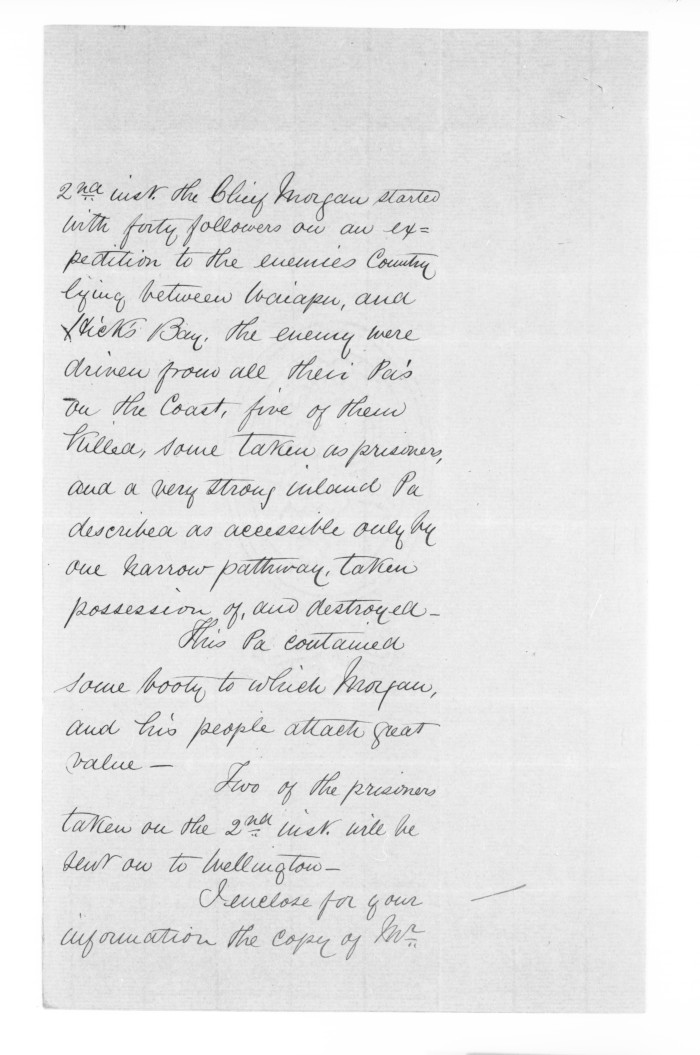 2nd inst. the Chief Morgan started
with forty followers on an ex=
pedition to the enemies Country
lying between Waiapu, and
Hick's Bay. The enemy were
driven from all their Pa's
on the Coast, five of them
killed, some taken as prisoners,
and a very strong inland Pa
described as accessible only by
one narrow pathway, taken
possession of, and destroyed –
This Pa contained
some booty to which Morgan,
and his people attach great
value –
Two of the prisoners
taken on the 2nd inst. will be
sent on to Wellington –
I enclose for your
information the copy of Mr